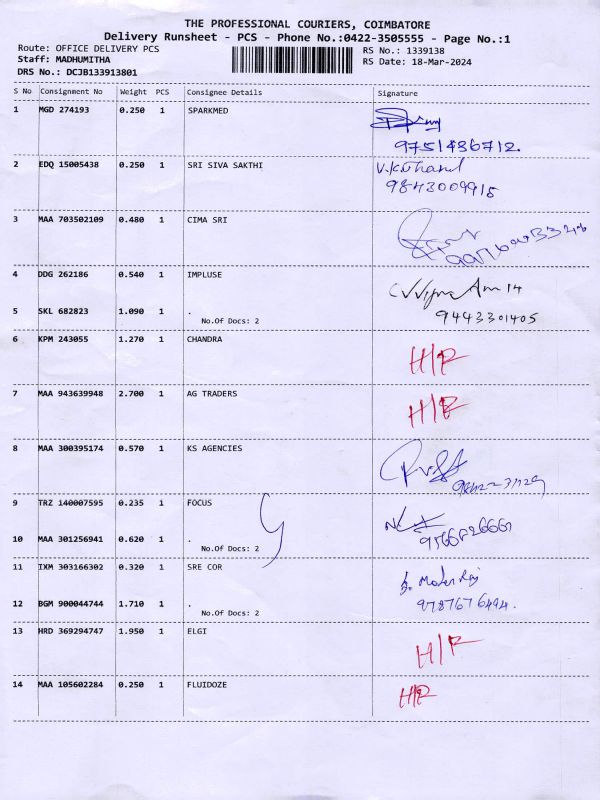 THE PROFESSIONAL COURIERS, COIMBATORE
Delivery Runsheet - PCS - Phone No.:0422-3505555 - Page No.:1
Route: OFFICE DELIVERY PCS RS No.: 1339138
Staff: MADHUMITHA RS Date: 18-Mar-2024
DRS No.: DCJB133913801
S No Consignment No Weight PCS Consignee Details Signature
1 MGD 274193 0.250 1 SPARKMED
9751436712.
2 EDQ 15005438 0.250 1 SRI SIVA SAKTHI
9843009915
3 MAA 703502109 0.480 1 CIMA SRI
4 DDG 262186 0.540 1 IMPLUSE
5 SKL 682823 1.090 1 . 9443301405
No.Of Docs: 2
6 KPM 243055 1.270 1 CHANDRA H/R
7 MAA 943639948 2.700 1 AG TRADERS H/R
8 MAA 300395174 0.570 1 KS AGENCIES
9 TRZ 140007595 0.235 1 FOCUS
10 MAA 301256941 0.620 1 .
No.Of Docs: 2
11 IXM 303166302 0.320 1 SRE COR
12 BGM 900044744 1.710 1 . 9787676494.
No.Of Docs: 2
13 HRD 369294747 1.950 1 ELGI H/R
14 MAA 105602284 0.250 1 FLUIDOZE H/R